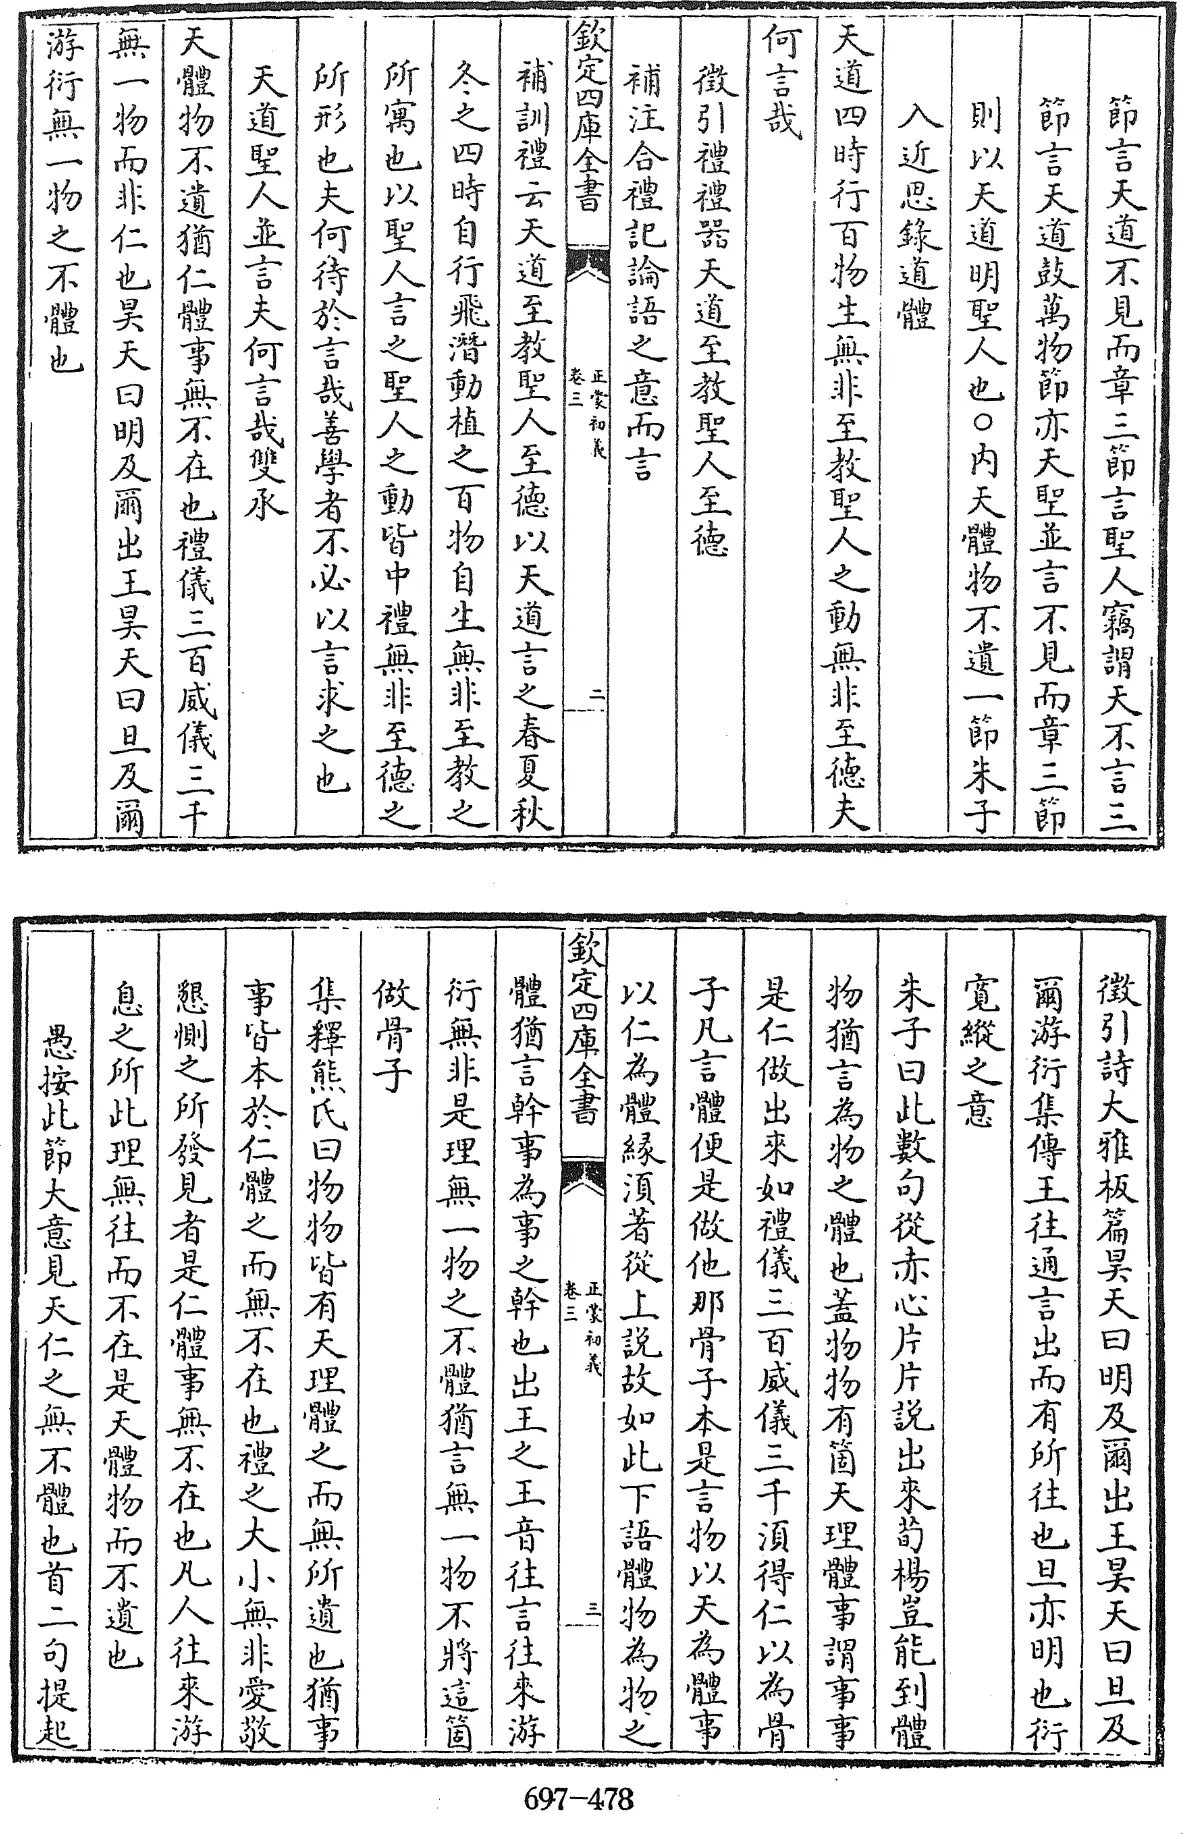 節言天道不見而章三節言聖人竊謂天不言三
節言天道鼓萬物節亦天聖並言不見而章三節
則以天道明聖人也○内天體物不遺一節朱子
入近思錄道體
天道四時行百物生無非至教聖人之動無非至德夫
何言哉
徴引禮禮器天道至教聖人至德
補注合禮記論語之意而言
欽定四庫全書
正蒙初義
卷三
二
補訓禮云天道至教聖人至德以天道言之春夏秋
冬之四時自行飛潛動植之百物自生無非至教之
所寓也以聖人言之聖人之動皆中禮無非至德之
所形也夫何待於言哉善學者不必以言求之也
天道聖人並言夫何言哉雙承
天體物不遺猶仁體事無不在也禮儀三百威儀三千
無一物而非仁也昊天曰明及爾出王昊天曰旦及爾
游衍無一物之不體也
徴引詩大雅板篇昊天曰明及爾出王昊天曰旦及
爾游衍集傳王往通言出而有所往也旦亦明也衍
寛縱之意
朱子曰此數句從赤心片片説出來荀楊豈能到體
物猶言為物之體也蓋物物有箇天理體事謂事事
是仁做出來如禮儀三百威儀三千須得仁以為骨
子凡言體便是做他那骨子本是言物以天為體事
以仁為體緣須著從上説故如此下語體物為物之
欽定四庫全書
正蒙初義
卷三
三
體猶言幹事為事之幹也出王之王音往言往來游
衍無非是理無一物之不體猶言無一物不將這箇
做骨子
集釋熊氏曰物物皆有天理體之而無所遺也猶事
事皆本於仁體之而無不在也禮之大小無非愛敬
懇惻之所發見者是仁體事無不在也凡人往來游
息之所此理無往而不在是天體物而不遺也
愚按此節大意見天仁之無不體也首二句提起
697-478